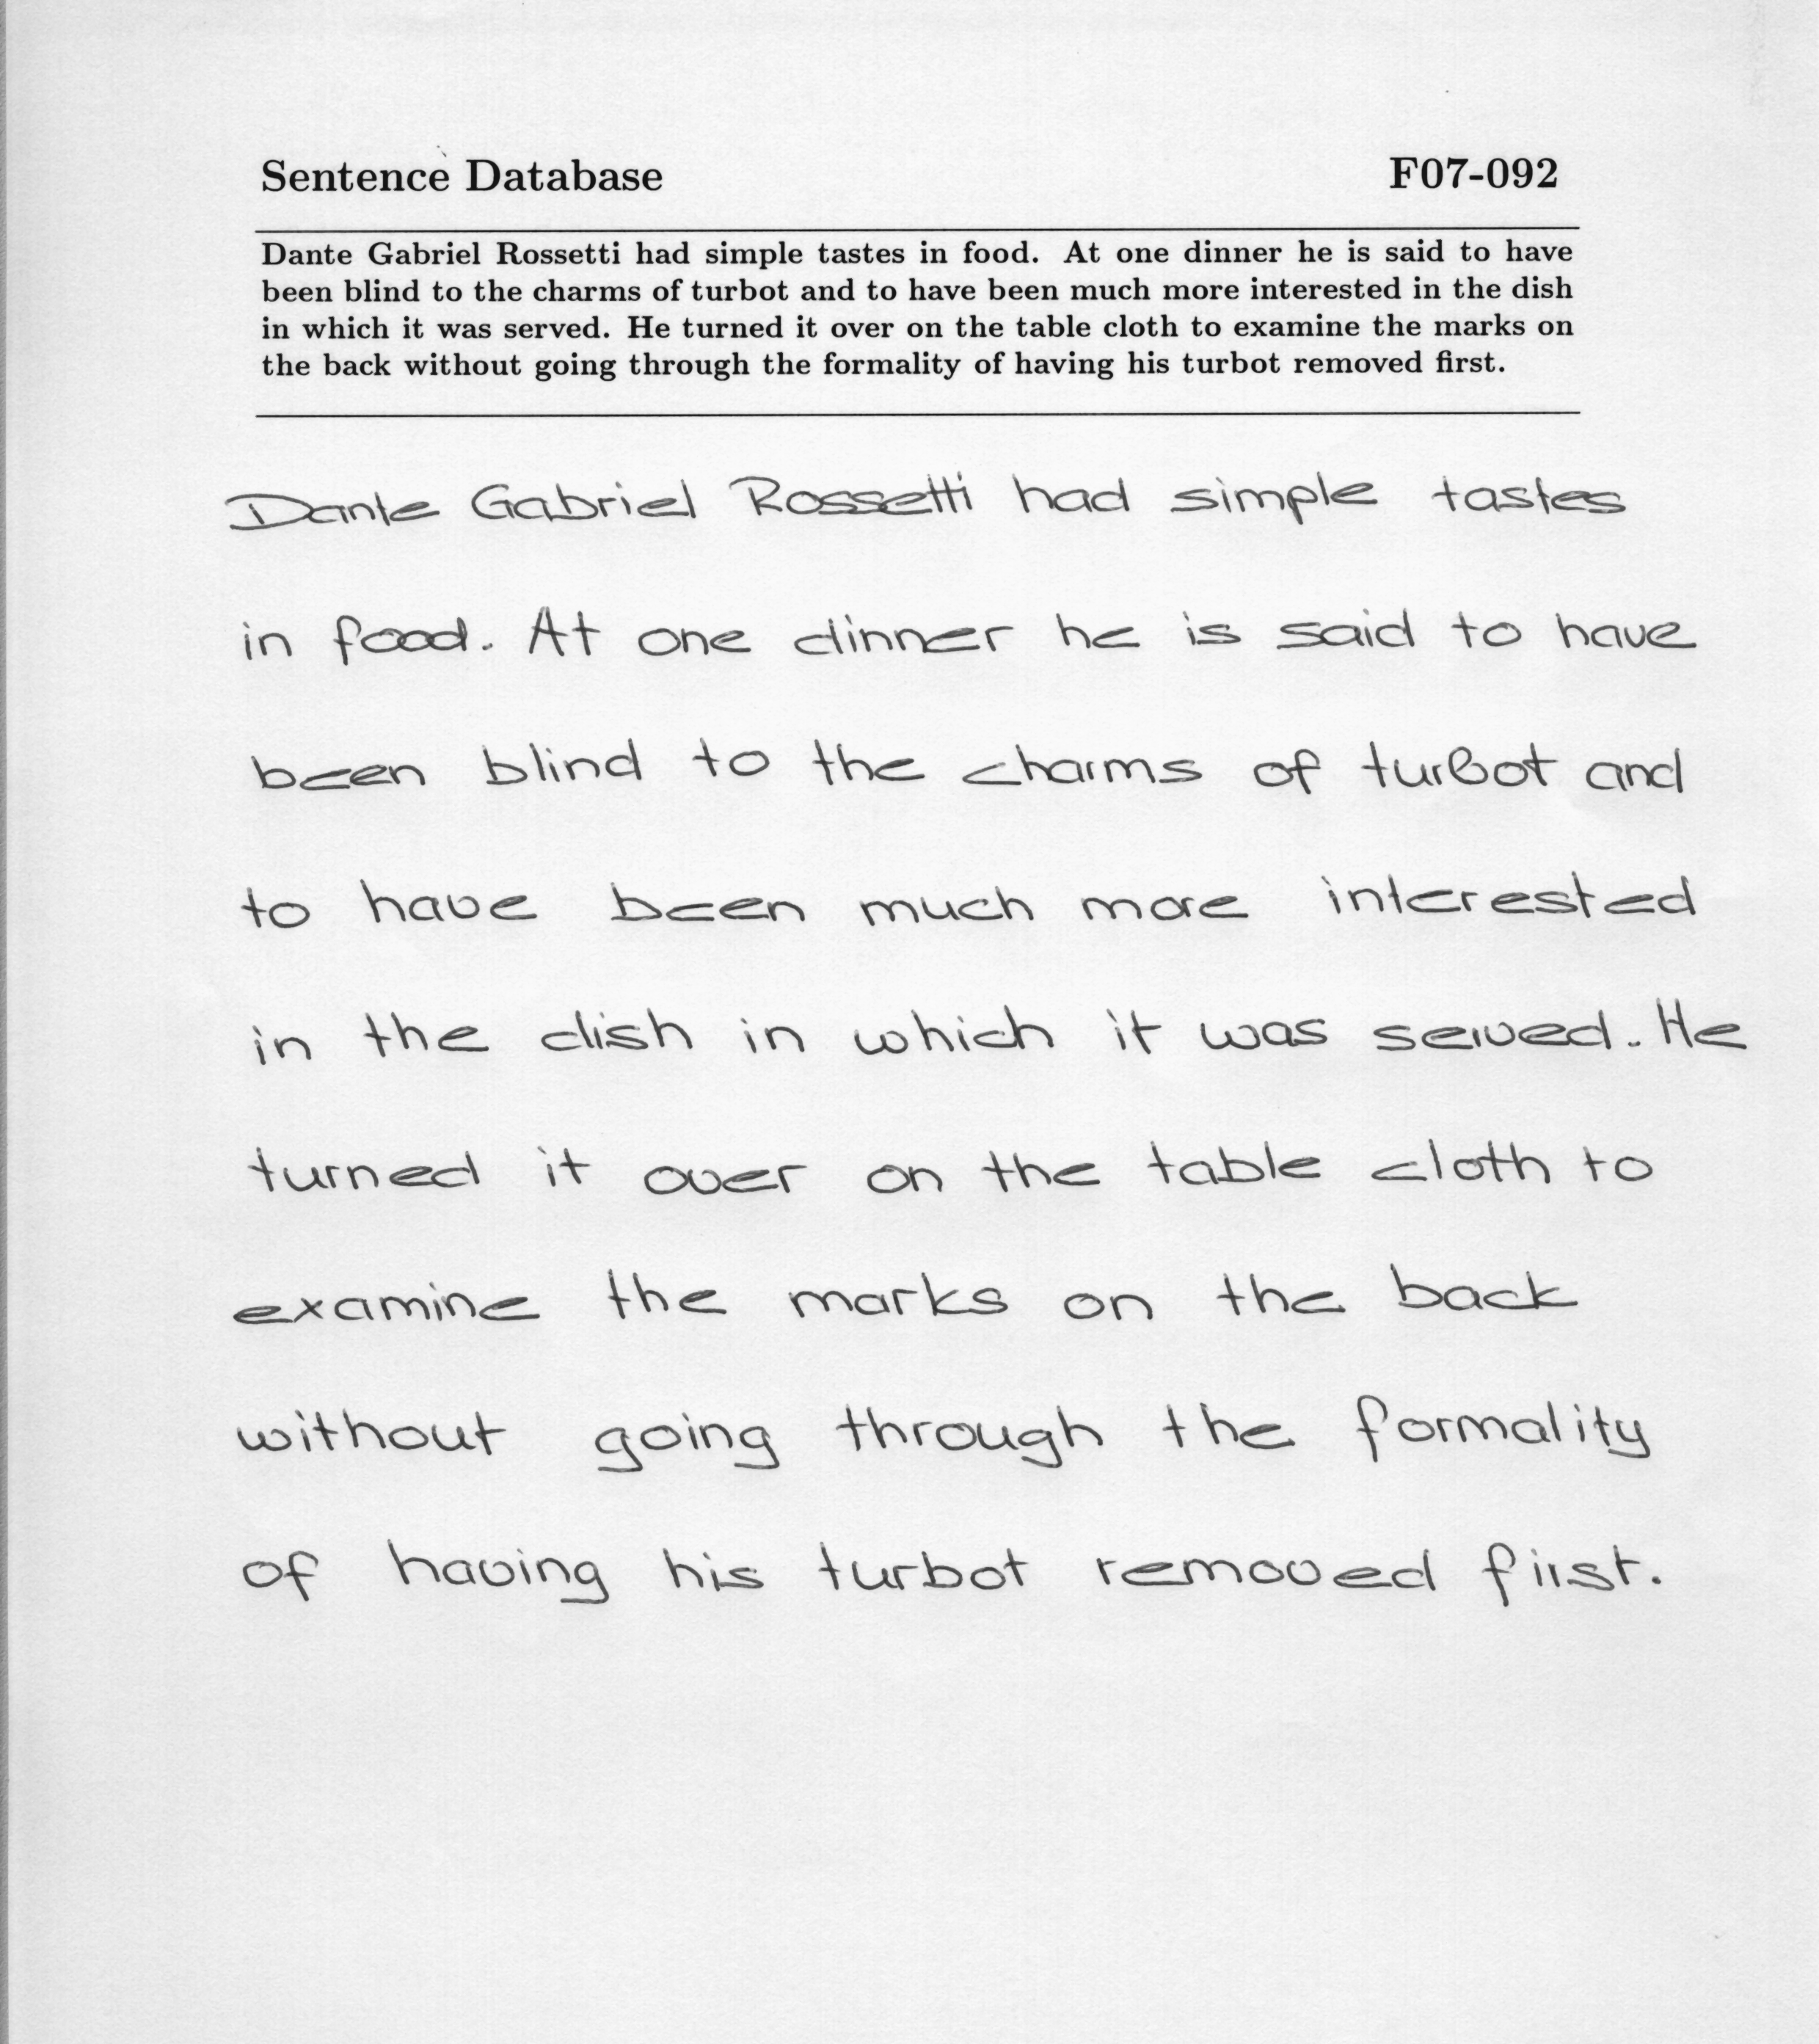 Sentence Database F07-092
Dante Gabriel Rossetti had simple tastes in food. At one dinner he is said to have
been blind to the charms of turbot and to have been much more interested in the dish
in which it was served. He turned it over on the table cloth to examine the marks on
the back without going through the formality of having his turbot removed first.
Dante Gabriel Rossetti had simple tastes
in food. At one dinner he is said to have
been blind to the charms of turbot and
to have been much more interested
in the dish in which it was served. He
turned it over on the table cloth to
examine the marks on the back
without going through the formality
of having his turbot removed first.